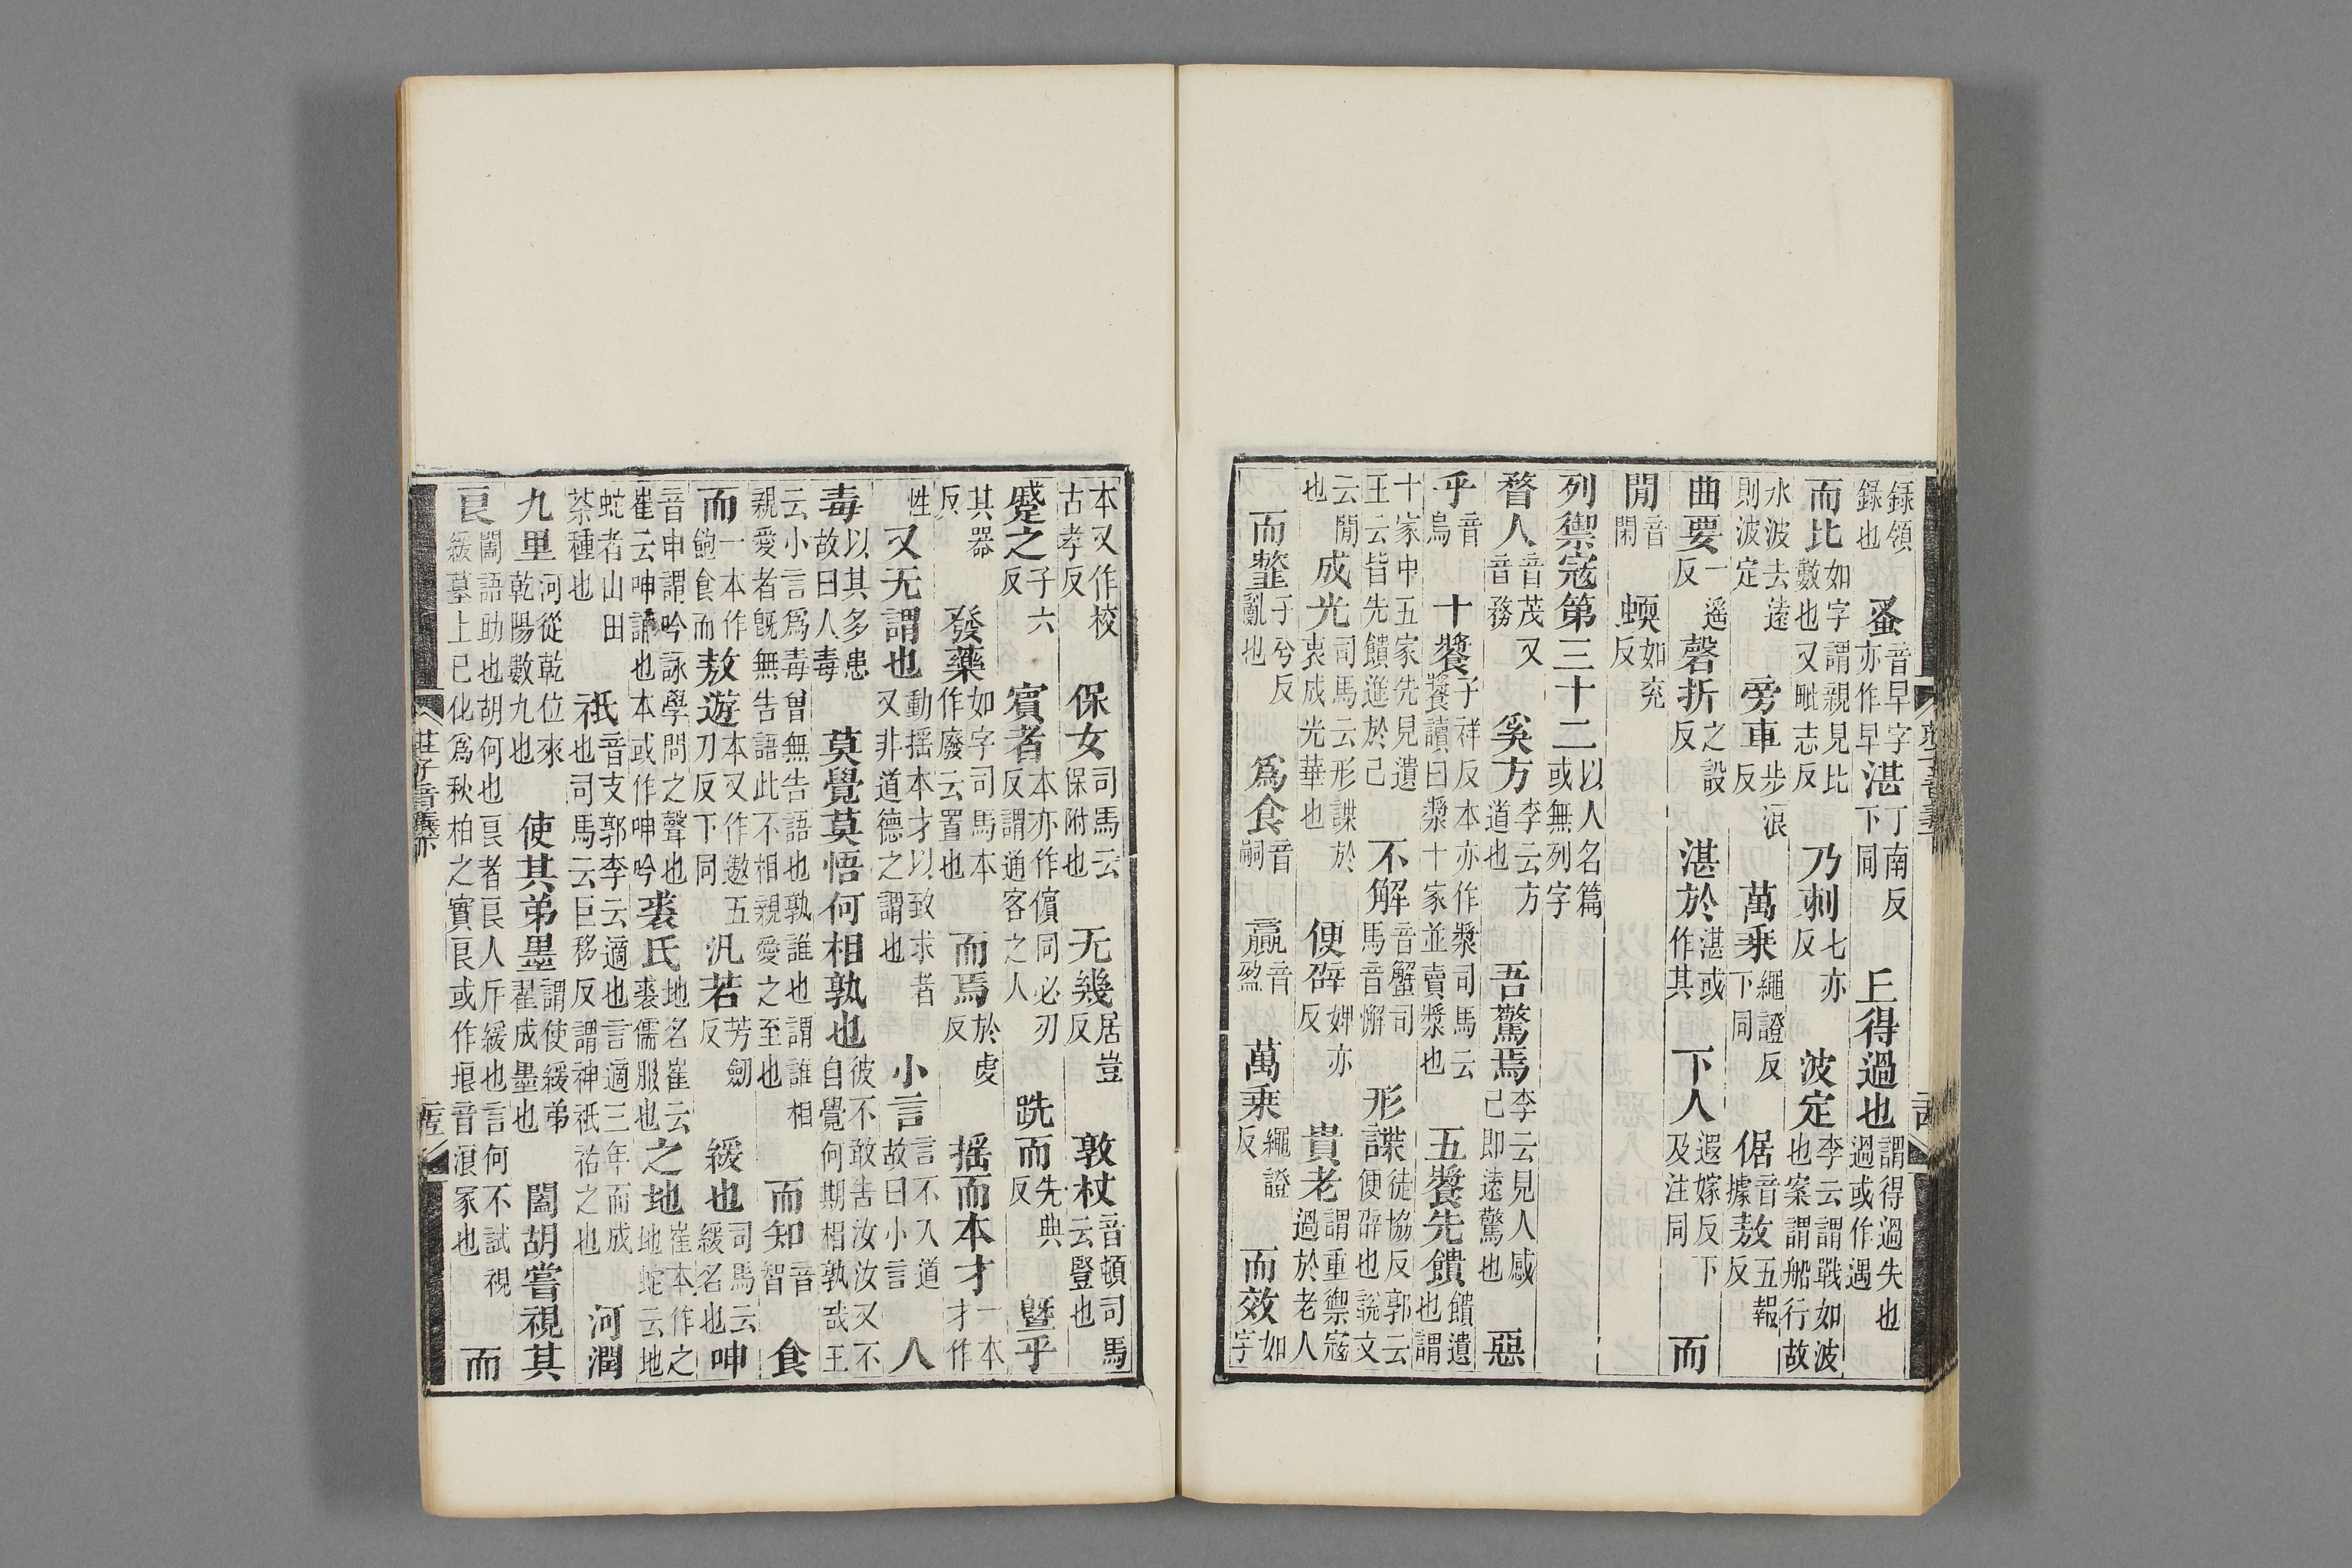 錄領錄也　蚤音早字亦作早湛丁南反下同　上得過也謂得過失也過或作遇
而比如字謂親見比數也又毗志反　乃刺七亦反　波定李云謂戰如波也案謂船行故
水波去遠則波定　旁車步浪反　萬乘繩證反下同　倨音據敖五報反
曲要一遥反　磬折之設反　湛於湛或作其　下人遐嫁反下及注同　而
閒音閑　蝡如兖反
列禦寇第三十二以人名篇或無列字
瞀人音茂又音務　奚方李云方道也　吾驚焉李云見人感己即遠驚也　惡
乎音烏　十漿子祥反本亦作漿司馬云漿讀曰漿十家並賣漿也　五漿先饋饋遺也謂
十家中五家先見遺王云皆先饋進於己　不解音蟹司馬音懈　形諜徒協反郭云便辟也說文
云閒也　成光司馬云形諜於衷成光華也　便辟婢亦反　貴老謂重禦寇過於老人
而䪡子兮反亂也　爲食音嗣　贏音盈　萬乘繩證反　而效如字
本又作校古孝反　保女司馬云保附也　无幾居豈反　敦杖音頓司馬云豎也
蹙之子六反　賓者本亦作儐同必刃反謂通客之人　跣而先典反　曁乎
其器反　發藥如字司馬本作廢云置也　而焉於虔反　揺而本才一本才作
性　又无謂也動揺本才以致求者又非道德之謂也　小言言不入道故曰小言　人
毒以其多患故曰人毒　莫覺莫悟何相孰也彼不敢告汝汝又不自覺何期相孰哉王
云小言爲毒曾無告語也孰誰也謂誰相親愛者旣無告語此不相親愛之至也　而知音智　食
而一本作飽食而敖遊本又作遨五刀反下同　汎若芳劒反　緩也司馬云緩名也　呻
音申謂吟詠學問之聲也崔云呻誦也本或作呻吟裘氏地名崔云裘儒服也之地崔本作之地蛇云地
蛇者山田茶種也　祇音支郭李云適也言適三年而成也司馬云巨移反謂神祇祐之也　河潤
九里河從乾位來乾陽數九也　使其弟墨謂使緩弟翟成墨也　闔胡嘗視其
良闔語助也胡何也良者良人斥緩也言何不試視緩墓上已化爲秋柏之實良或作埌音浪冢也　而